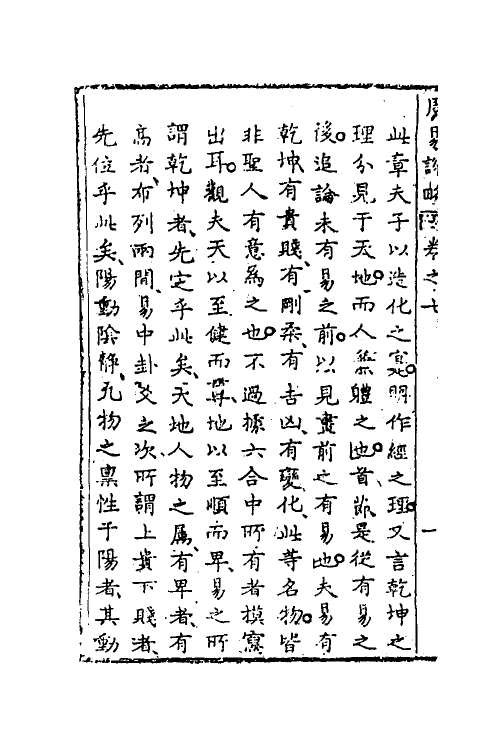 周易說略卷之七 一
此章夫子以造化之寔明作經之理又言乾坤之
理分見于天地而人兼體之也首節是從有易之
後追論未有易之前以見畫前之有易也夫易有
乾坤有貴賤有剛柔有吉凶有變化此等名物皆
非聖人有意為之也不過據六合中所有者模寫
出耳觀夫天以至健而尊地以至順而卑易之所
謂乾坤者先定乎此矣天地人物之屬有卑者有
高者布列兩間易中卦爻之次所謂上貴下賤者
先位乎此矣陽動陰靜凡物之禀性于陽者其動